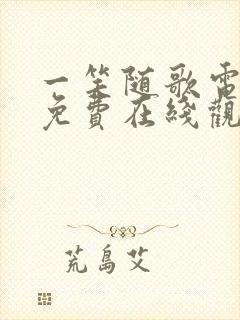 一笑随歌電
免費在綫觀
荒島艾